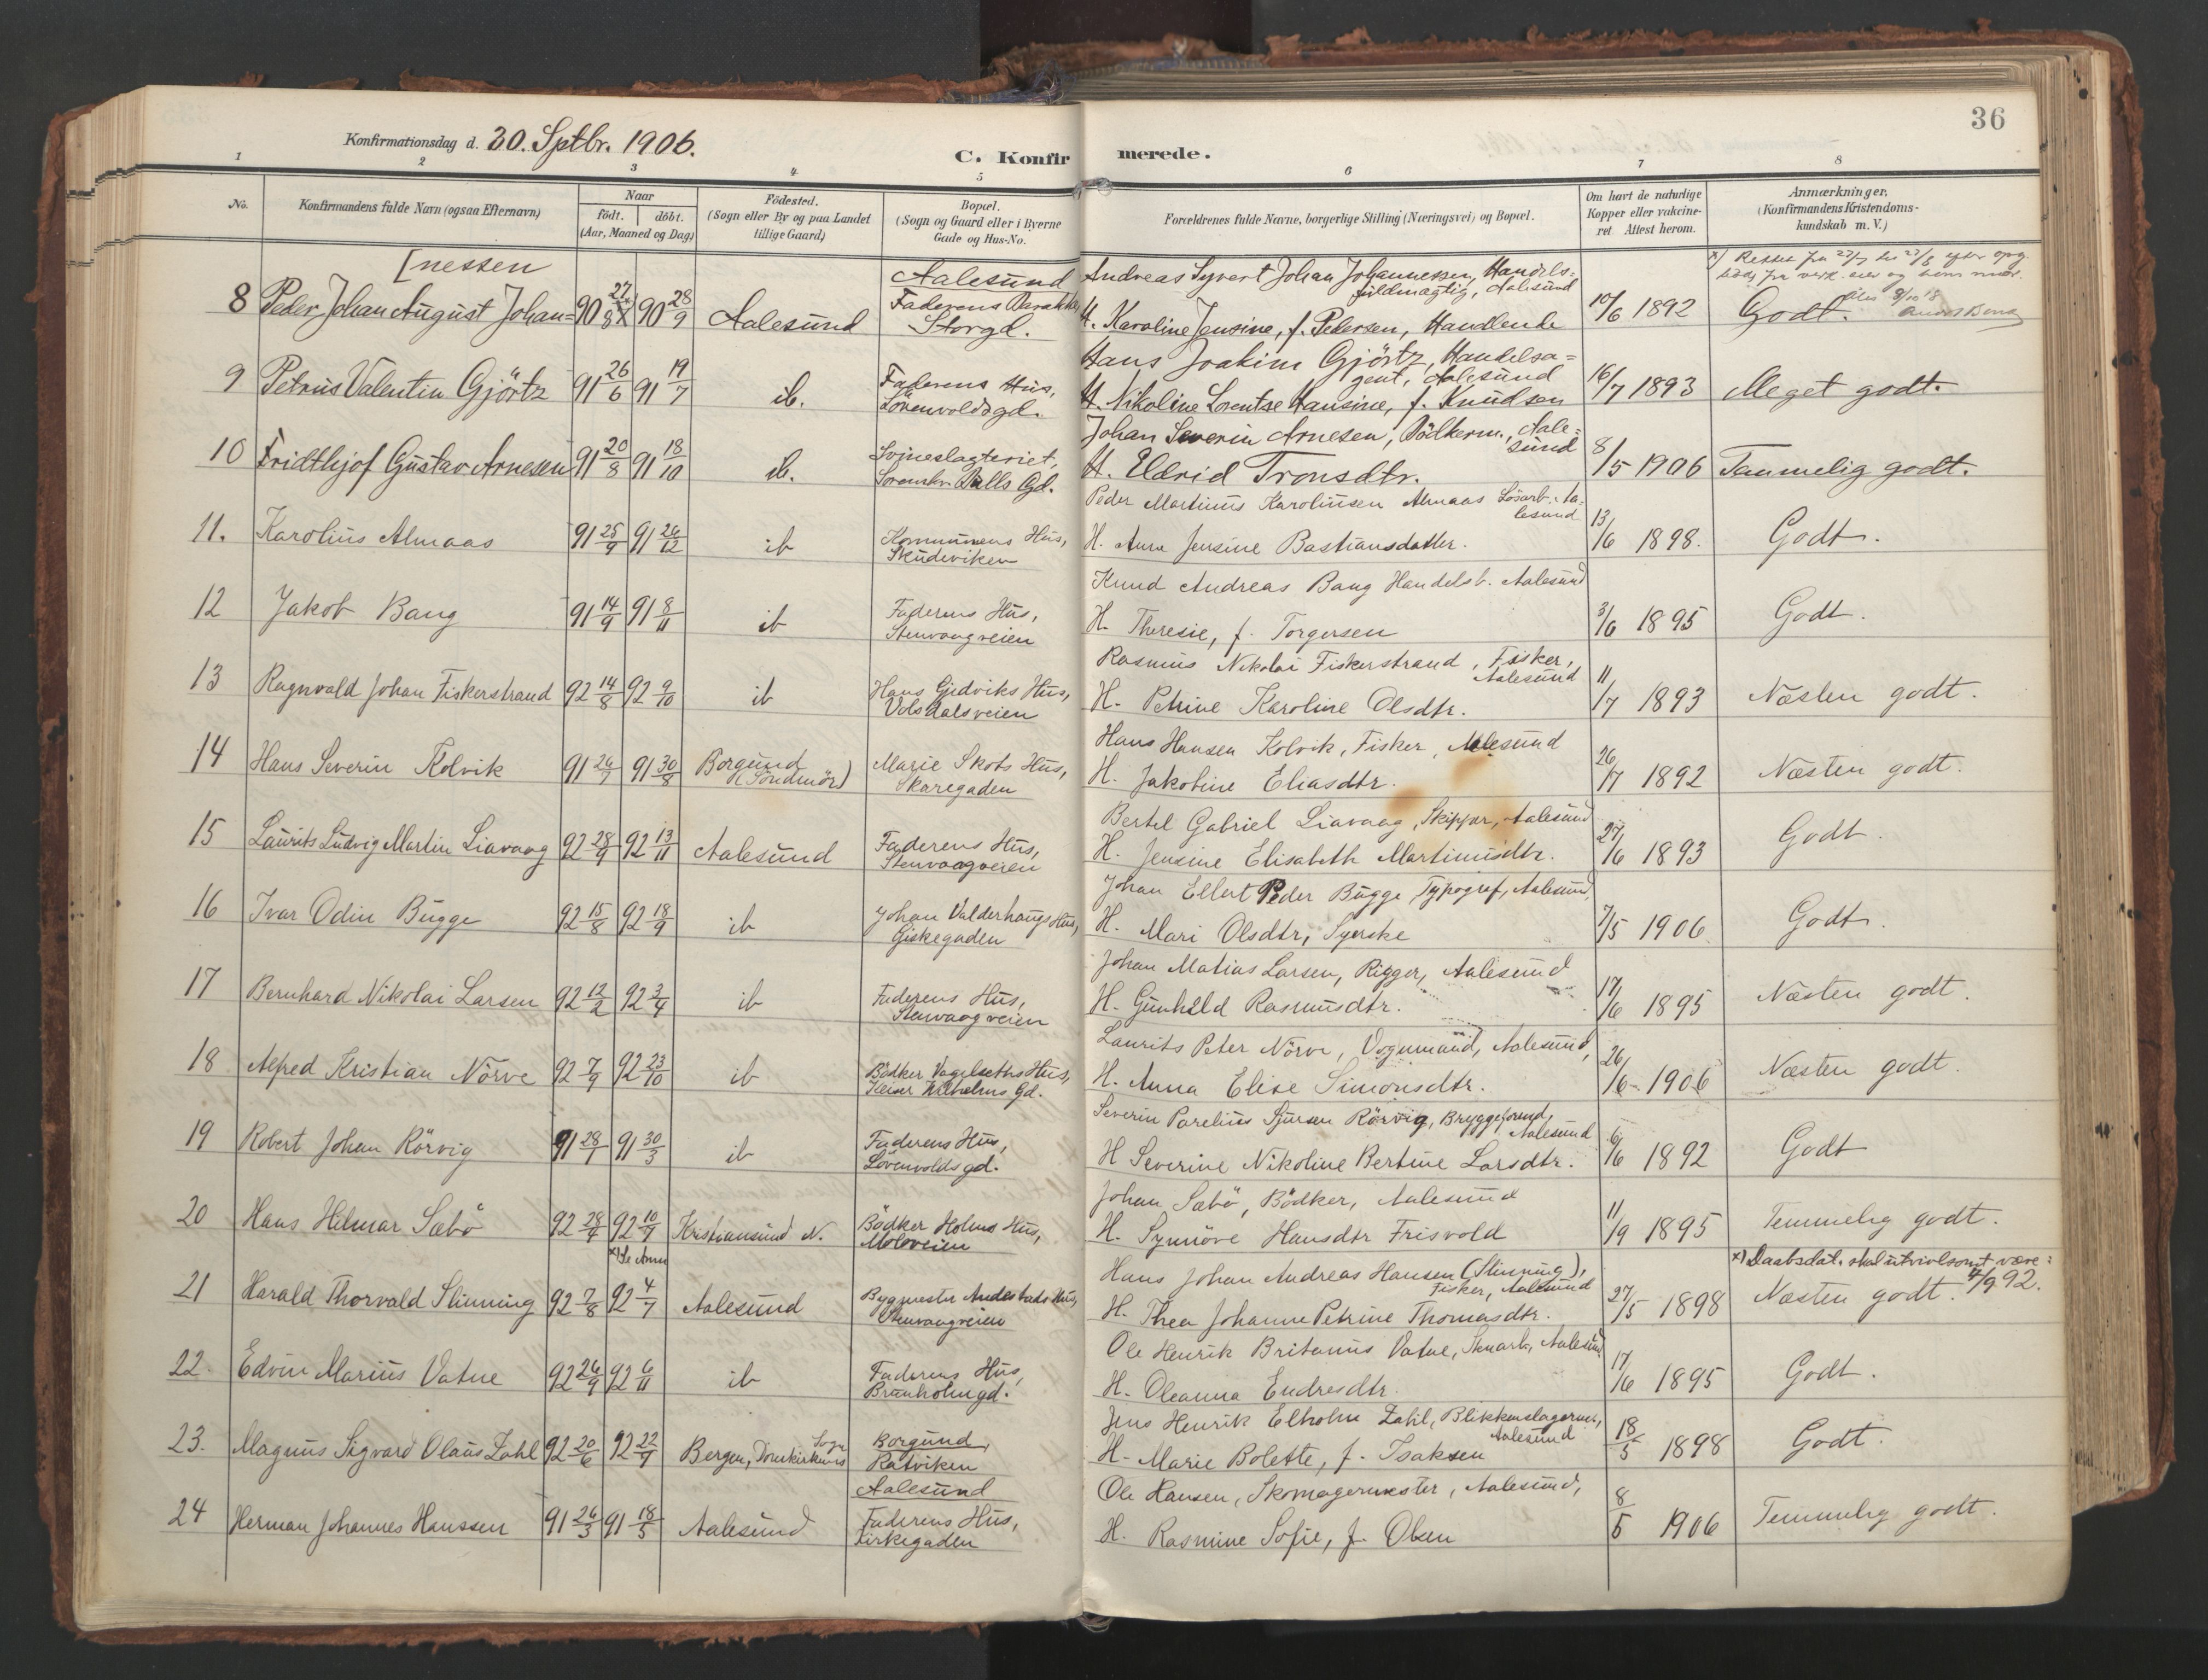 36
Konfirmationsdag d. 30. Sptbr. 1906.
C. Konfirmerede.
1 2 3 4 5 6 7 8
No.
Konfirmandens fulde Navn (ogsaa Efternavn)
Naar
födt. döbt.
(Aar, Maaned og Dag)
Födested.
(Sogn eller By og paa Landet
tillige Gaard)
Bopæl.
(Sogn og Gaard eller i Byerne
Gade og Hus-No.
Forældrenes fulde Navne, borgerlige Stilling (Næringsvei) og Bopæl.
Om havt de naturlige
Kopper eller vakcine-
ret Attest herom.
Anmærkninger.
(Konfirmandens Kristendoms-
kundskab m. V.)
[nessen
8 Peder Johan August Johan= 90 27/8 x) 90 28/9 Aalesund
Aalesund
Faderens Barakke
Storgd.
Andreas Syvert Johan Johannessen, Handels=
fuldmægtig, Aalesund
H. Karoline Jensine, f. Pedersen, Handlende
10/6 1892 Godt.
9 Petrus Valentin Gjörtz 91 26/6 91 19/7 ib.
Faderens Hus,
Lövenvoldsgd.
Hans Joakim Gjörtz, Handelsa=
gent, Aalesund
H. Nikoline Lorentse Hansine, f. Knudsen
16/7 1893 Meget godt.
10 Fridthjof Gustav Arnesen 91 20/8 91 18/10 ib.
Svineslagteriet,
Sorenskr. Bulls Gd.
Johan Severin Arnesen, Bödkerm., Aale=
sund
H. Eldrid Tronsdtr.
8/5 1906 Temmelig godt.
11. Karolius Almaas 91 25/9 91 26/12 ib
Kommunens Hus,
Skudeviken
Peder Martinus Karoliussen Almaas Lösarb. Aa-
lesund
H. Anne Jensine Bastiansdatter.
13/6 1898. Godt.
12 Jakob Bang 91 14/9 91 8/11 ib
Faderens Hus,
Stenvaagveien
Knud Andreas Bang Handelsb. Aalesund
H. Theresie, f. Torgersen
3/6 1895 Godt.
13 Ragnvald Johan Fiskerstrand 92 14/8 92 9/10 ib
Hans Gjedviks Hus,
Volsdalsveien
Rasmus Nikolai Fiskerstrand, Fisker,
Aalesund
H. Petrine Karoline Olsdtr.
11/7 1893 Næsten godt.
14 Hans Severin Kolvik 91 26/7 91 30/8
Borgund
(Söndmör)
Marie Skots Hus,
Skaregaden
Hans Hansen Kolvik, Fisker, Aalesund
H. Jakobine Eliasdtr.
26/7 1892 Næsten godt.
15 Laurits Ludvig Martin Liavaag 92 28/9 92 13/11 Aalesund
Faderens Hus,
Stenvaagveien
Bertel Gabriel Liavaag, Skipper, Aalesund
H. Jensine Elisabeth Martinusdtr.
27/6 1893 Godt.
16 Ivar Odin Bugge 92 15/8 92 18/9 ib
Johan Valderhaugs Hus,
Giskegaden
Johan Ellert Peder Bugge, Typograf, Aalesund,
H. Mari Olsdtr, Syerske
7/5 1906 Godt.
17 Bernhard Nikolai Larsen 92 12/2 92 3/4 ib
Faderens Hus,
Stenvaagveien
Johan Matias Larsen, Rigger, Aalesund
H. Gunhild Rasmusdtr.
17/6 1895 Næsten godt.
18 Alfred Kristian Nörve 92 7/9 92 23/10 ib
Bödker Vagelseths Hus,
Keiser Wilhelms Gd.
Laurits Peter Nörve, Vognmand, Aalesund,
H. Anna Elise Simonsdtr.
26/6 1906 Næsten godt.
19 Robert Johan Rörvig 91 28/1 91 30/3 ib
Faderens Hus,
Lövenvoldsgd.
Severin Parelius Sjursen Rörvig, Bryggeformd,
Aalesund
H Severine Nikoline Bertine Larsdtr.
6/6 1892 Godt
20 Hans Hilmar Sæbö 92 28/4 92 10/7 Kristiansund N.
Bödker Holms Hus,
Moloveien
Johan Sæbö, Bödker, Aalesund
H. Synnöve Hansdtr Frisvold
11/9 1895 Temmelig godt.
x) Se Anm
x) Daabsdat. skal utvivlsomt være:
4/9 92.
21 Harald Thorvald Slinning 92 7/8 92 4/7 Aalesund
Bygmester Andestads Hus,
Stenvaagveien
Hans Johan Andreas Hansen (Slinning),
Fisker, Aalesund
H. Thea Johanne Petrine Thomasdtr.
27/5 1898 Næsten godt.
22. Edvin Marius Vatne 92 26/9 92 6/11 ib
Faderens Hus,
Brunholmgd.
Ole Henrik Britanus Vatne, Stenarb., Aalesund
H. Oleanna Endresdtr.
17/6 1895 Godt.
23. Magnus Sigvard Olaus Zahl 92 20/6 92 22/9 Bergen, Domkirkens Sogn
Borgund,
Ratviken
Jens Henrik Elholm Zahl, Blikkenslagerm.,
Aalesund
H. Marie Bolette, f. Isaksen
18/5 1898 Godt.
24 Herman Johannes Hanssen 91 26/3 91 18/5 Aalesund
Aalesund
Faderens Hus,
Kirkegaden
Ole Hansen, Skomagermester, Aalesund,
H. Rasmine Sofie, f. Olsen
8/5 1906 Temmelig godt.